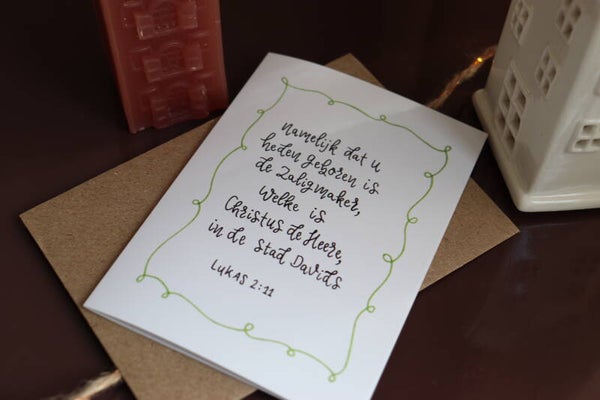 namelijk dat u
heden geboren is
de Zaligmaker,
Welke is
Christus de Heere,
in de stad Davids
LUKAS 2:11